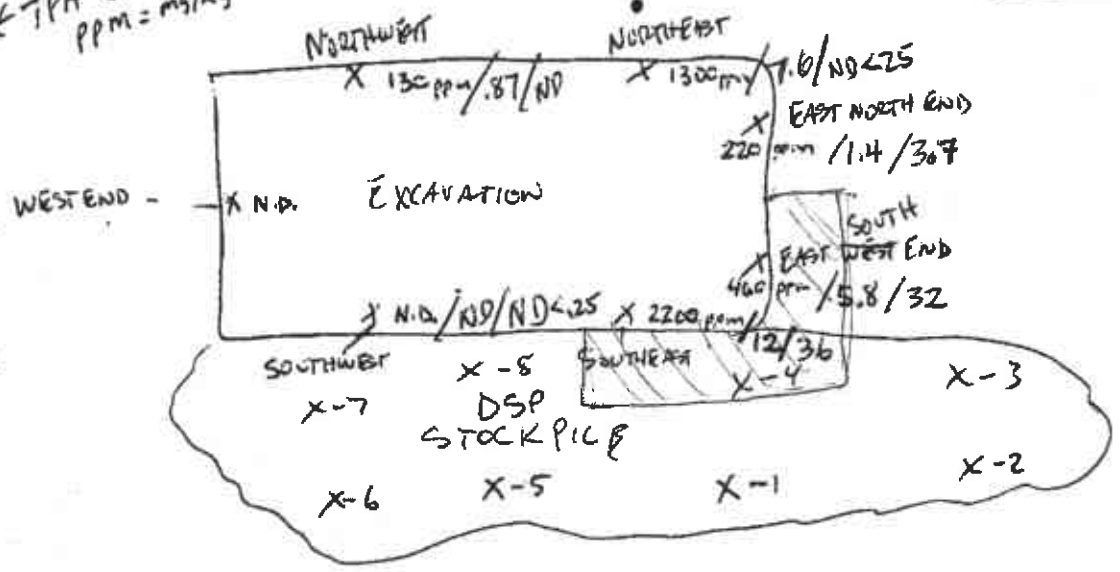 TPH
ppm = mg/kg
NORTHWEST
X 130 ppm/.87/ND
NORTHEAST
X 1300 ppm/7.6/ND<25
X EAST NORTH END
220 ppm /1.4/3.7
WEST END - X N.D.
EXCAVATION
SOUTH
X EAST WEST END
460 ppm /5.8/32
X N.D./ND/ND<.25
X 2200 ppm/12/36
SOUTHWEST
SOUTHEAST
X-8
X-4
X-3
X-7
DSP
STOCKPILE
X-6
X-5
X-1
X-2